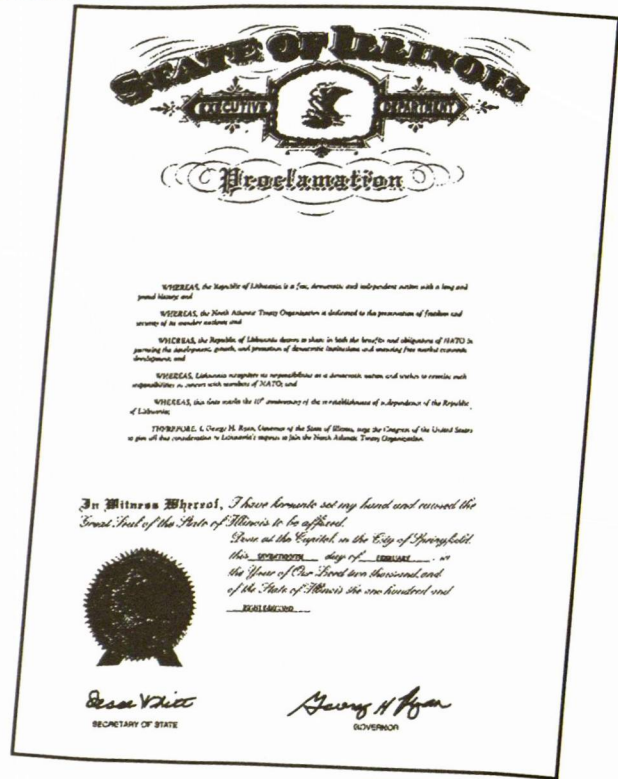 STATE OF ILLINOIS
EXECUTIVE DEPARTMENT
Proclamation
WHEREAS, the Republic of Lithuania is a free, democratic and independent nation with a long and
proud history; and
WHEREAS, the North Atlantic Treaty Organization is dedicated to the preservation of freedom and
security of its member nations; and
WHEREAS, the Republic of Lithuania desires to share in both the benefits and obligations of NATO in
pursuing the development, growth, and promotion of democratic institutions and ensuring free market economic
development; and
WHEREAS, Lithuania recognizes its responsibilities as a democratic nation and wishes to exercise such
responsibilities in concert with members of NATO; and
WHEREAS, this date marks the 10th anniversary of the reestablishment of independence of the Republic
of Lithuania;
THEREFORE, I, George H. Ryan, Governor of the State of Illinois, urge the Congress of the United States
to give all due consideration to Lithuania's request to join the North Atlantic Treaty Organization.
In Witness Whereof, I have hereunto set my hand and caused the
Great Seal of the State of Illinois to be affixed.
Done at the Capitol, in the City of Springfield,
this day of FEBRUARY , in
the Year of Our Lord two thousand, and
of the State of Illinois the one hundred and
Jesse White George H Ryan
SECRETARY OF STATE GOVERNOR